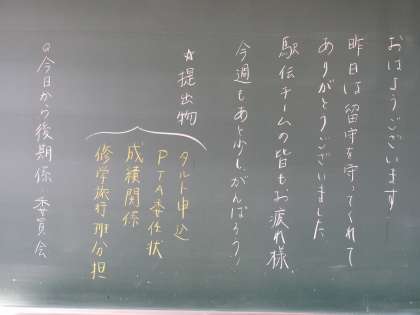 おはようございます!
昨日は留守を守ってくれて
ありがとうございました
駅伝チームの皆もお疲れ様。
今週もあと少しがんばろう!
☆提出物
タルト申込
PTA委任状
成績関係
修学旅行班分担
◎今日から後期係 委員会